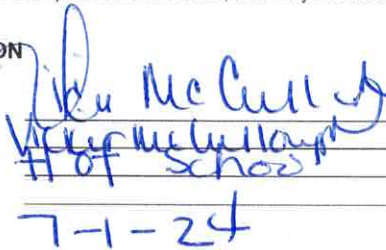 ON
Vicky McCullough
Vicky McCullough
H of School
7-1-24